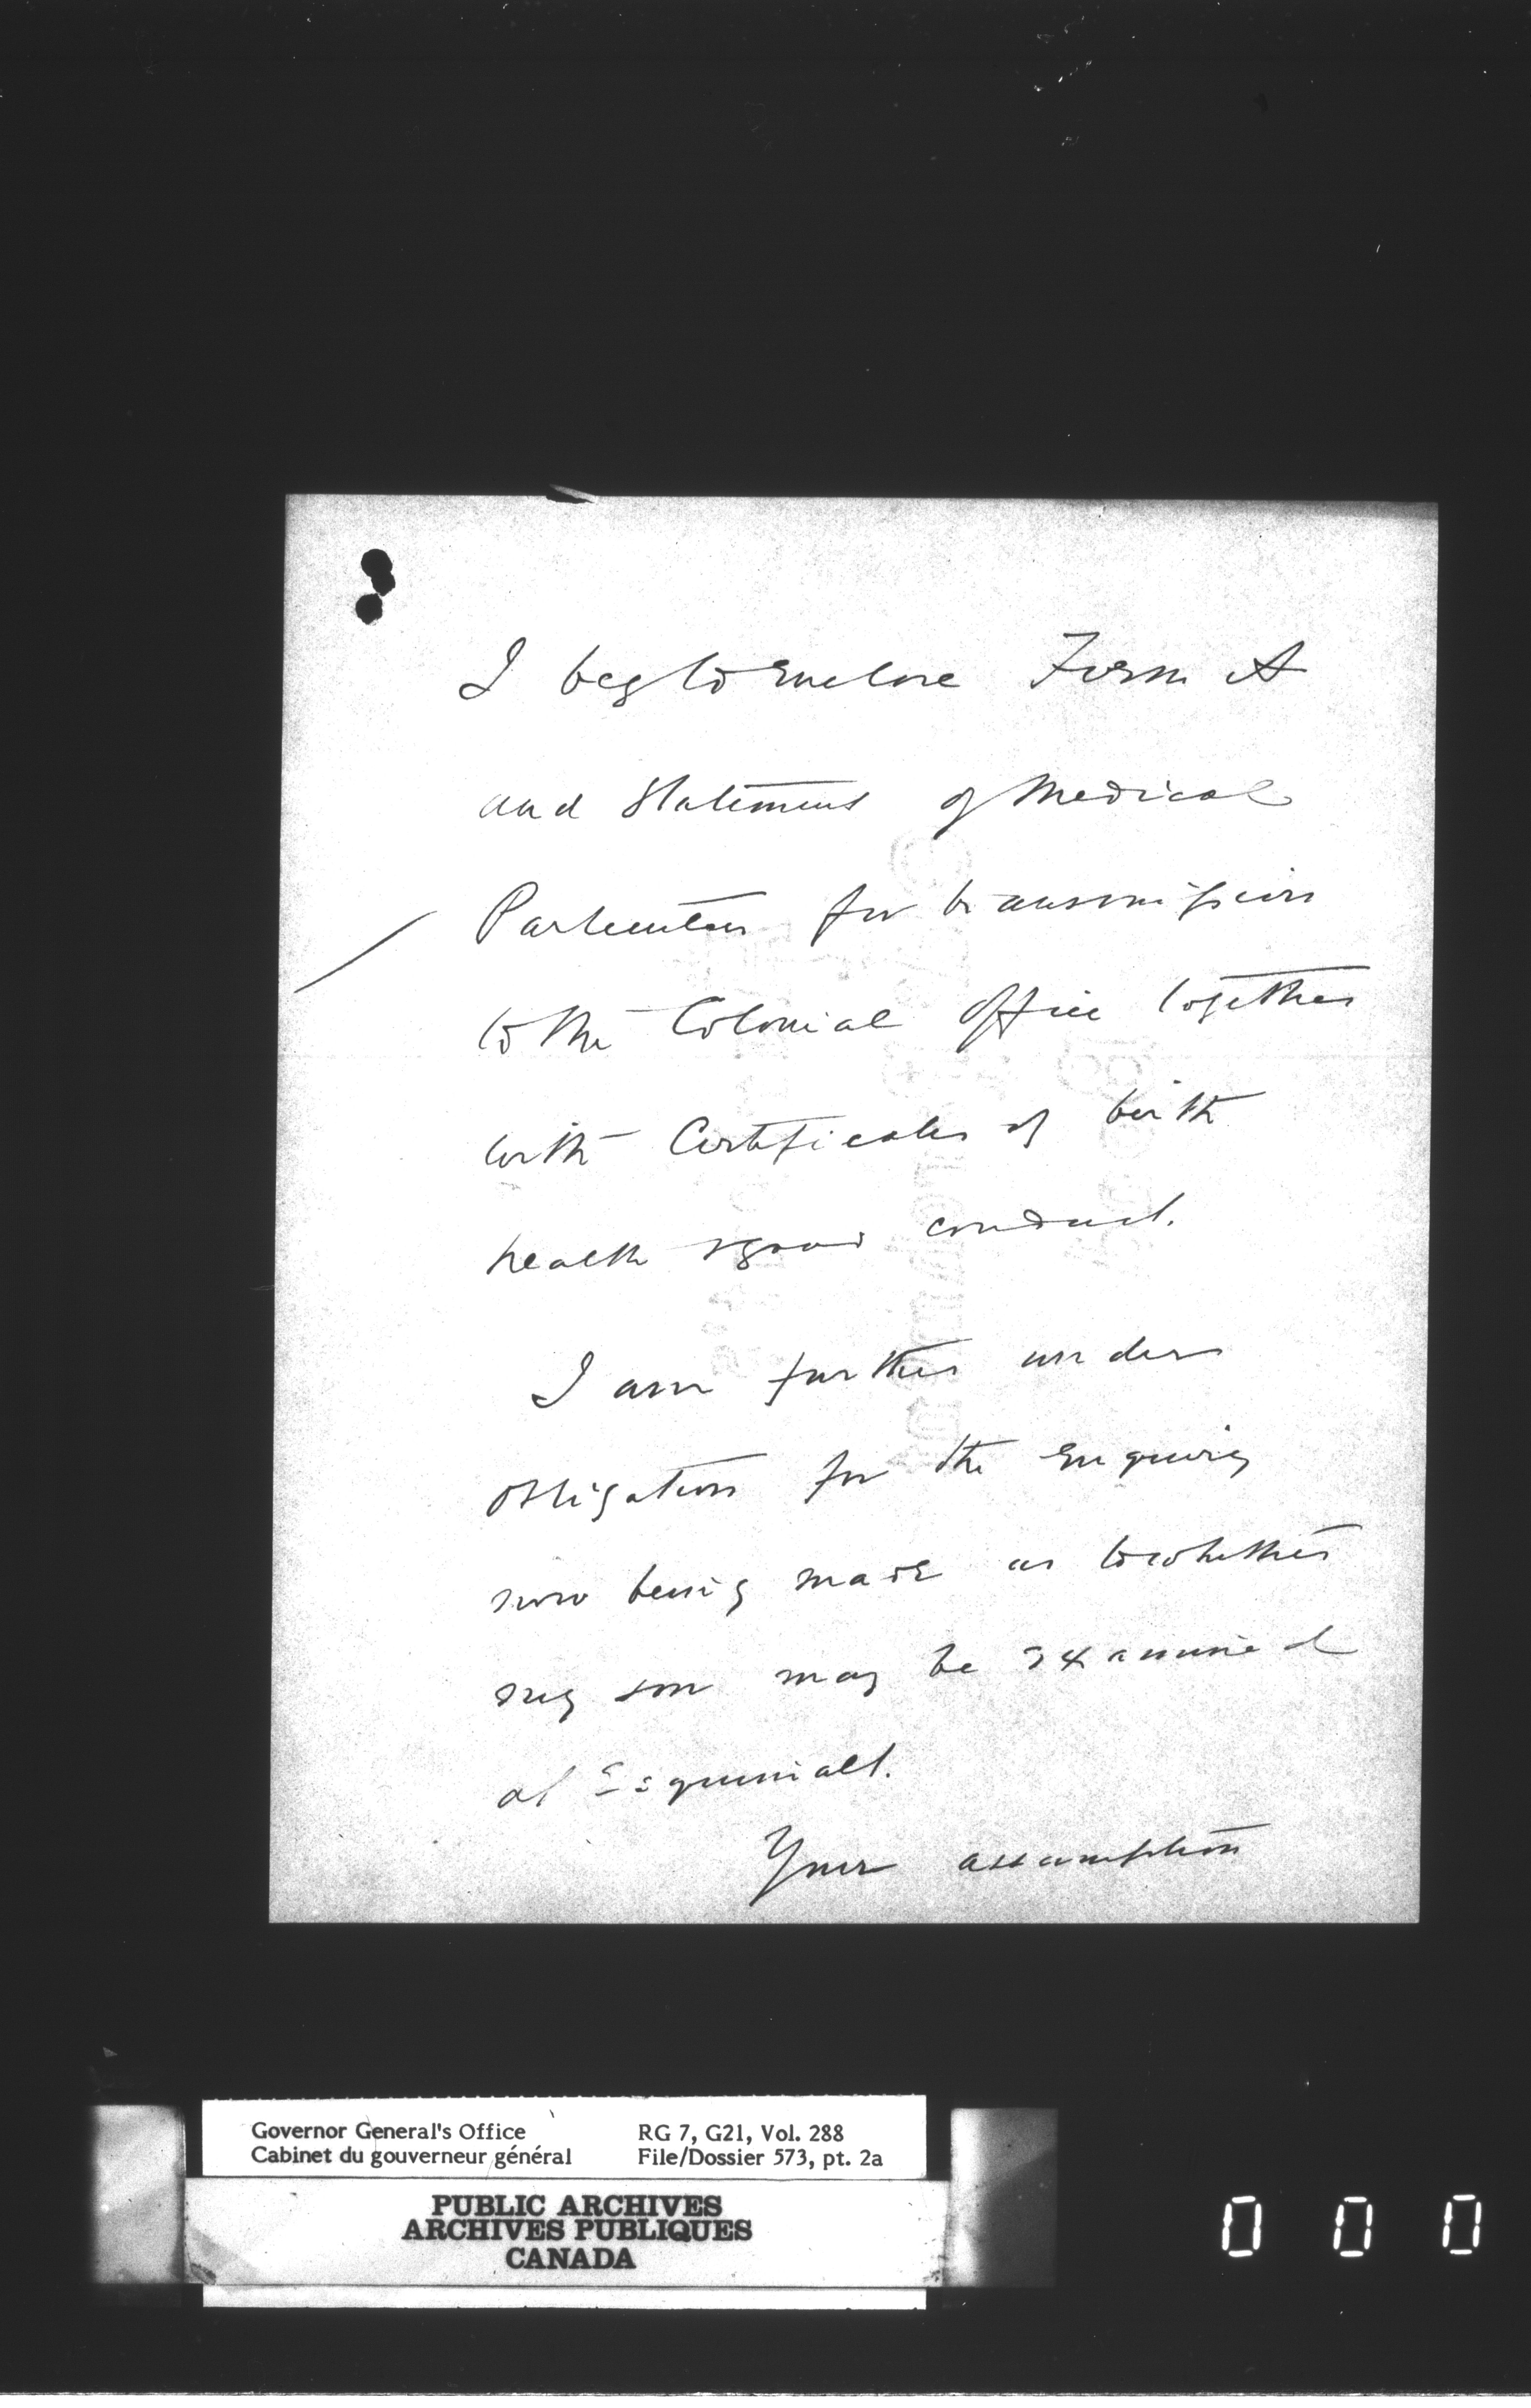 I beg to enclose Form A
and Statement of Medical
Particulars for transmission
to the Colonial Office together
with Certificates of birth
health & good conduct.
I am further under
obligation for the enquiry
now being made as to whether
my son may be examined
at Esquimalt.
Your assumption
Governor General's Office
Cabinet du gouverneur général
RG 7, G21, Vol. 288
File/Dossier 573, pt. 2a
PUBLIC ARCHIVES
ARCHIVES PUBLIQUES
CANADA
0 0 0